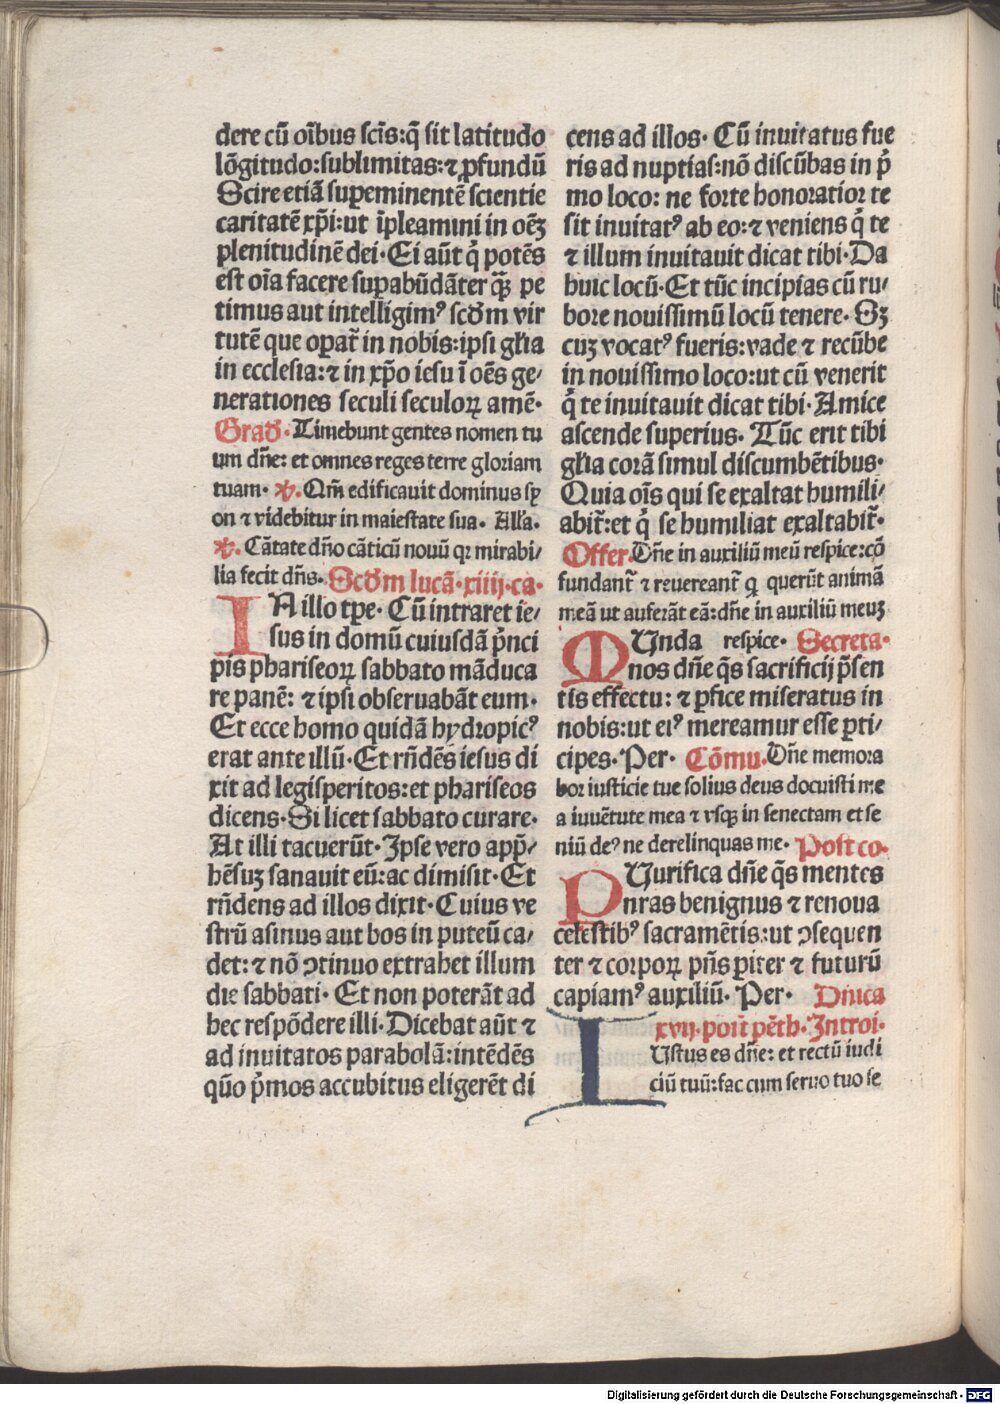 dere cū oībus scīs:q̄ sit latitudo
lōgitudo:sublimitas:⁊ ꝓfundū
Scire etiā suꝑeminentē scientie
caritatē xp̄i:ut īpleamini in oēꝫ
plenitudinē dei·Ei aūt q̇ potēs
est oīa facere suꝑabūdāter q̄ꝫ pe
timus aut intelligimꝰ scd̄m vir
tutē que oꝑat̄ in nobis:ipsi gl̄ia
in ecclesia:⁊ in xp̄o iesu ī oēs ge/
nerationes seculi seculoꝝ amē·
Grad̄·Timebunt gentes nomen tu
um dn̄e: et omnes reges terre gloriam
tuam· ℣. Qm̄ edificauit dominus sy
on ⁊ videbitur in maiestate sua· All'a·
℣. Cātate dn̄o cāticū nouū qꝛ mirabi/
lia fecit dn̄s· Scd̄m lucā·xiiij·ca·
IN illo tꝑe· Cū intraret ie/
sus in domū cuiusdā pͥnci
pis phariseoꝝ sabbato māduca
re panē: ⁊ ipsi obseruabāt eum·
Et ecce homo quidā hydropicꝰ
erat ante illū·Et rn̄dēs iesus di
xit ad legisperitos:et phariseos
dicens·Si licet sabbato curare·
At illi tacuerūt·Ipse vero app̄/
hēsuꝫ sanauit eū:ac dimisit·Et
rn̄dens ad illos dixit·Cuius ve
strū asinus aut bos in puteū ca/
det: ⁊ nō ꝯtinuo extrahet illum
die sabbati· Et non poterāt ad
hec respōdere illi·Dicebat aūt ⁊
ad inuitatos parabolā:intēdēs
qūo pͥmos accubitus eligerēt di
cens ad illos· Cū inuitatus fue
ris ad nuptias:nō discūbas in pͥ
mo loco: ne forte honoratior te
sit inuitatꝰ ab eo:⁊ veniens q̇ te
⁊ illum inuitauit dicat tibi·Da
huic locū·Et tūc incipias cū ru/
bore nouissimū locū tenere· Sꝫ
cuꝫ vocatꝰ fueris:vade ⁊ recūbe
in nouissimo loco:ut cū venerit
q̇ te inuitauit dicat tibi·Amice
ascende superius· Tūc erit tibi
gl̄ia corā simul discumbētibus·
Quia oīs qui se exaltat humili/
abit̄:et q̇ se humiliat exaltabit̄·
Offer·Dn̄e in auxiliū meū respice:cō
fundant̄ ⁊ reuereant̄ q̇ querūt animā
meā ut auferāt eā:dn̄e in auxiliū meuꝫ
MUnda respice· Secreta·
nos dn̄e q̄s sacrificij p̄sen
tis effectu: ⁊ ꝑfice miseratus in
nobis:ut eiꝰ mereamur esse ꝑti/
cipes·Per· Cōmu·Dn̄e memora
bor iusticie tue solius deus docuisti me
a iuuētute mea ⁊ vsqꝫ in senectam et se
niū deꝰ ne derelinquas me· Post co·
PUrifica dn̄e q̄s mentes
nras benignus ⁊ renoua
celestibꝰ sacramētis:ut ꝯsequen
ter ⁊ corpoꝝ pn̄s ꝑiter ⁊ futurū
capiamꝰ auxiliū· Per· Dn̄ica
xvij·post pēth·Introi·
IUstus es dn̄e: et rectū iudi
ciū tuū:fac cum seruo tuo se
Digitalisierung gefördert durch die Deutsche Forschungsgemeinschaft · DFG